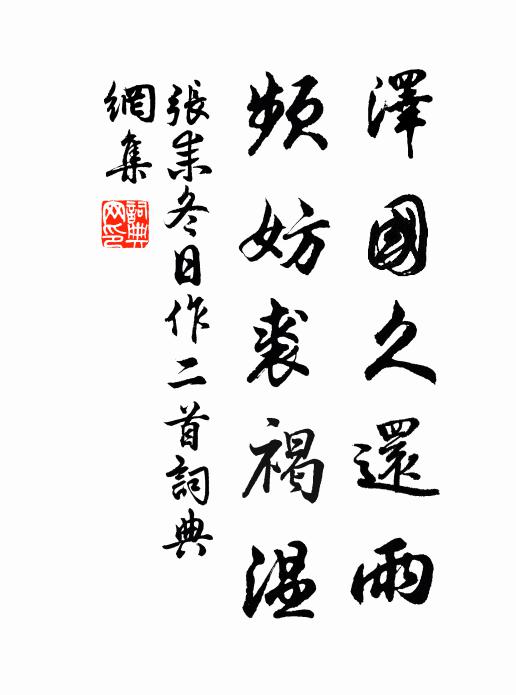 澤國久還雨
頻妨裘褐温
張耒冬日作二首詞典
網集
詞典網印